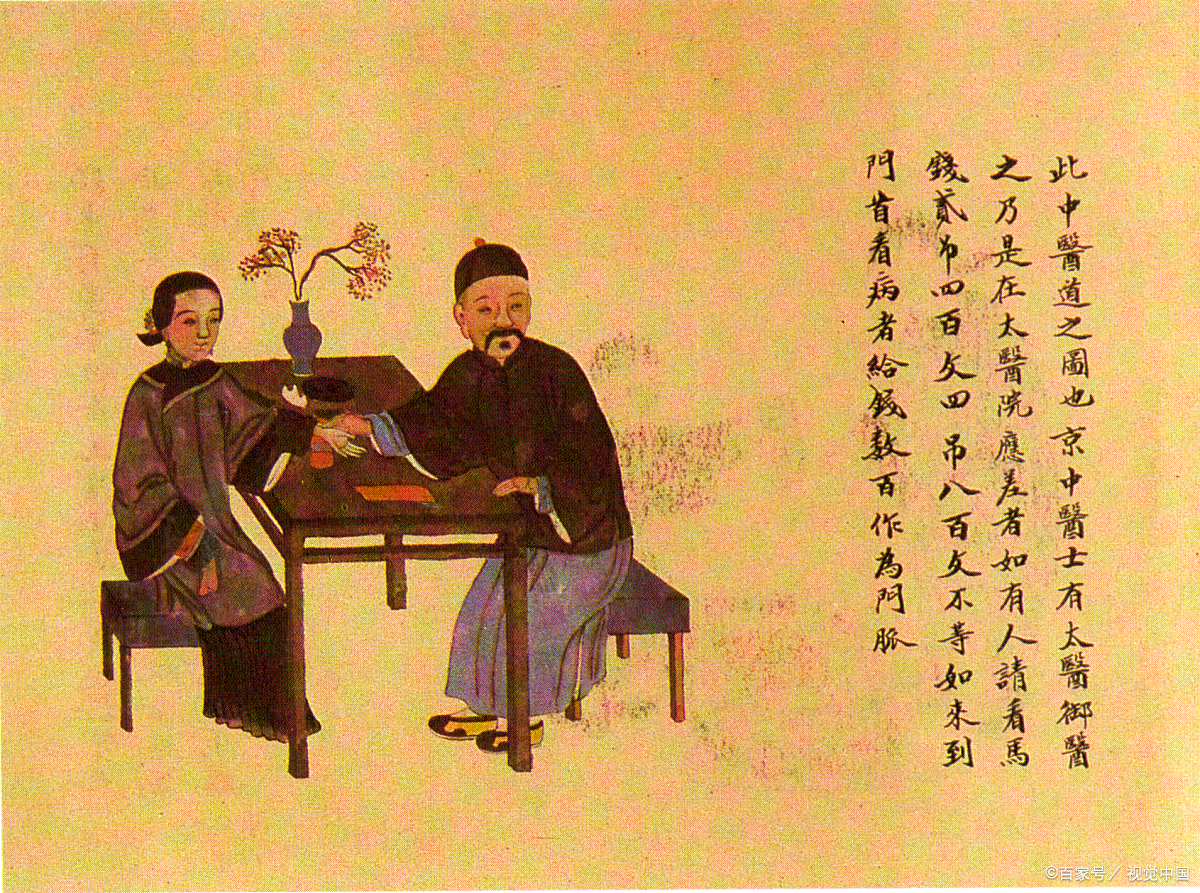 此中醫道之圖也京中醫士有太醫御醫
之乃是在太醫院應差者如有人請看馬
錢貳吊四百文四吊八百文不等如來到
門首看病者給錢数百作為門脈
©百家号／视觉中国